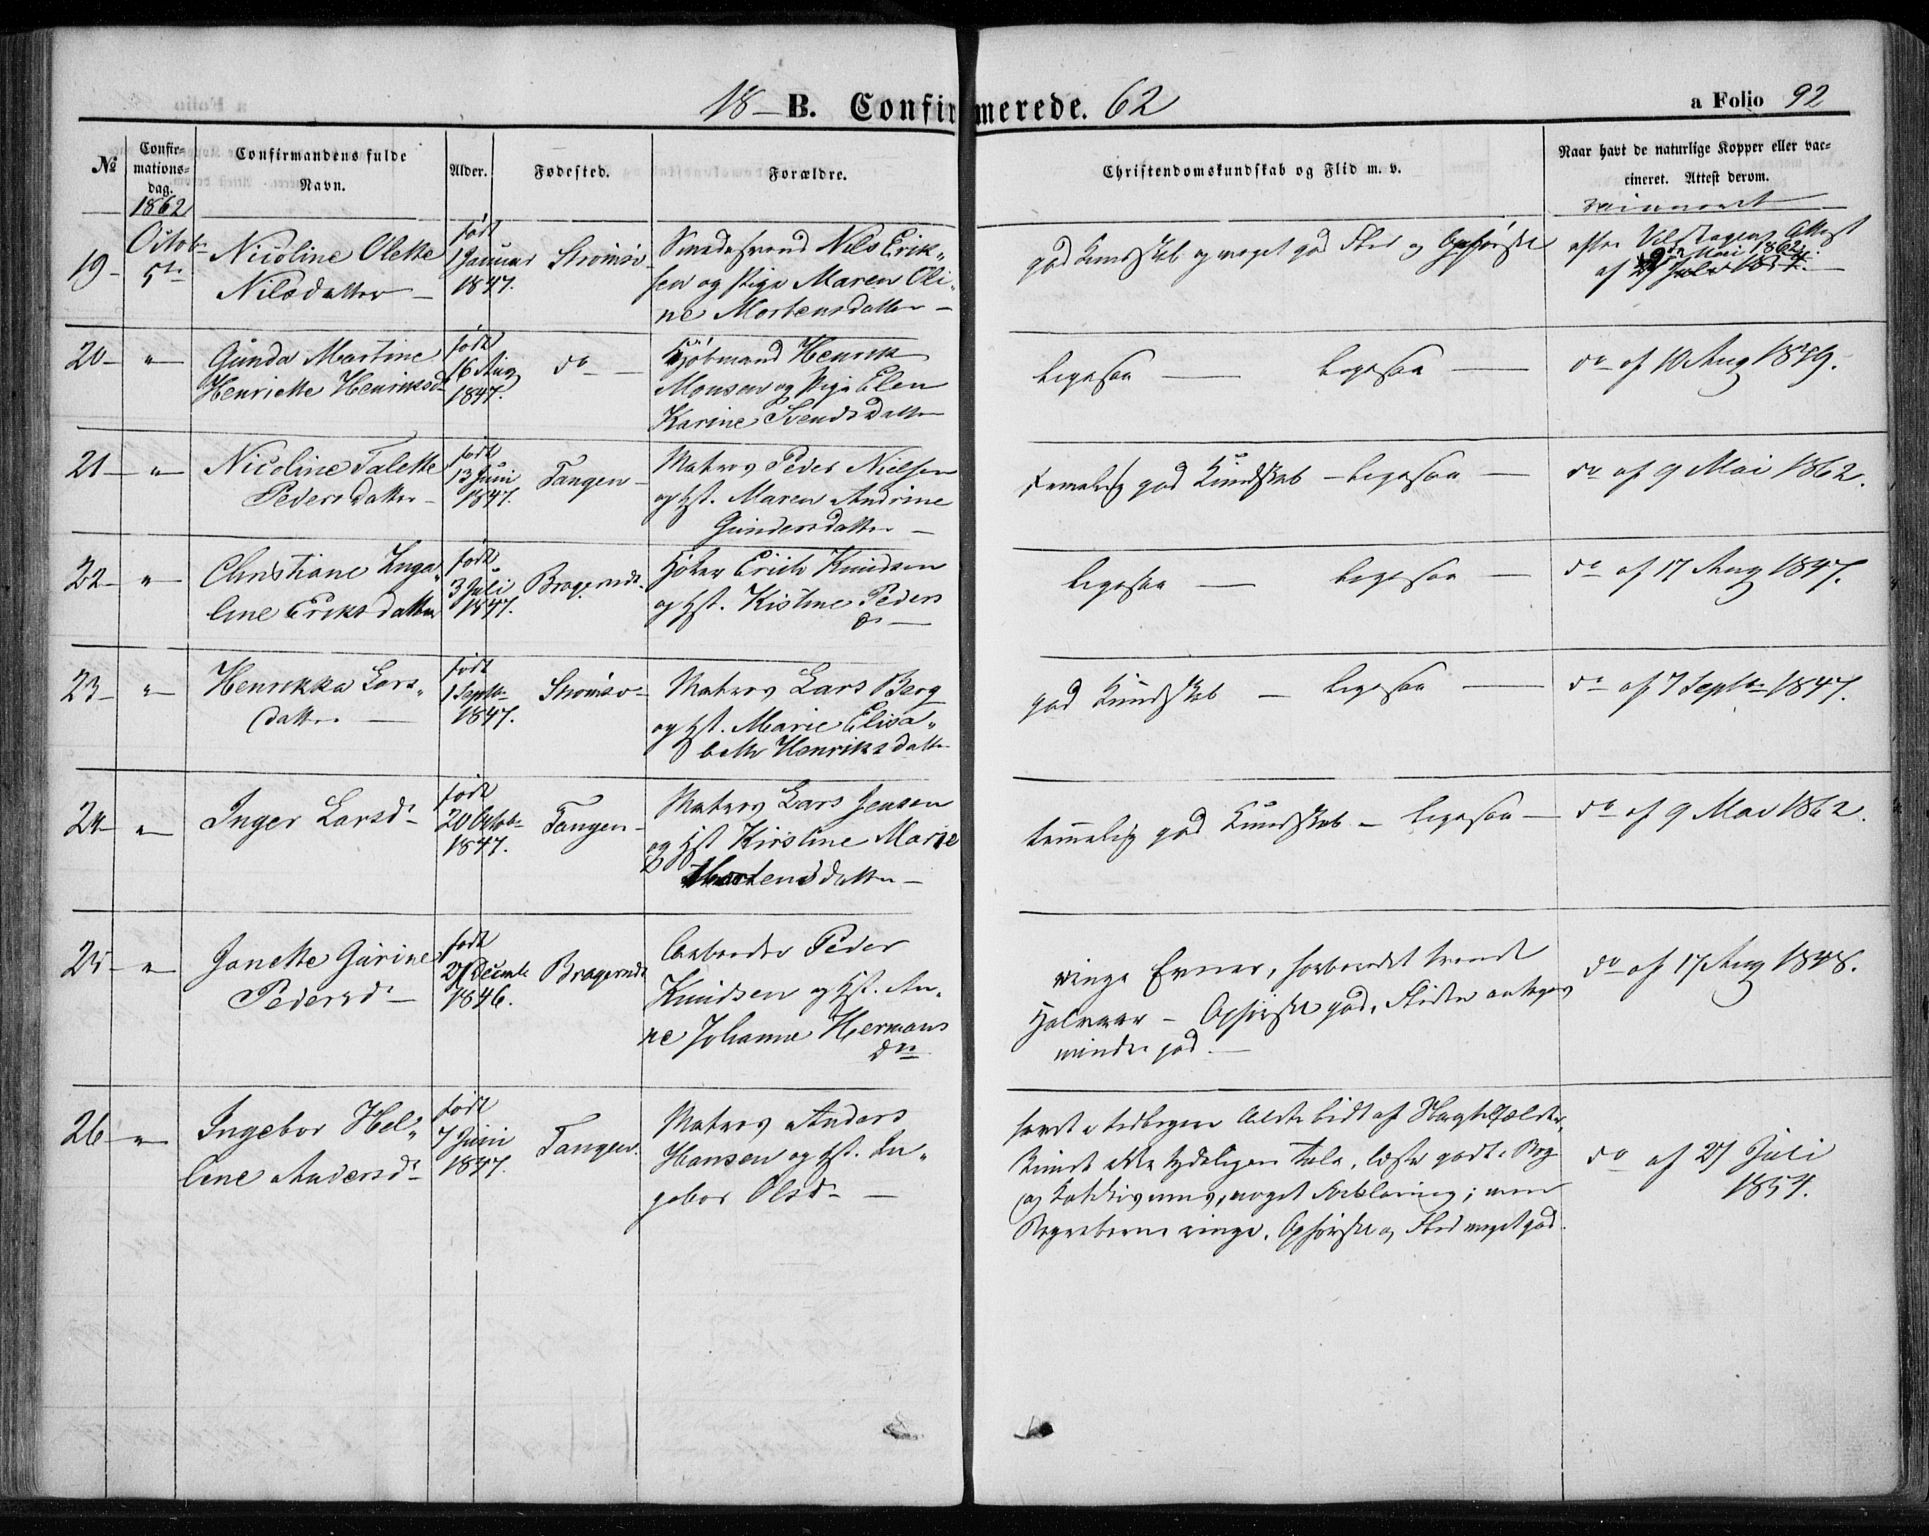 18 – B. Confirmerede. 62
a Folio 92
№
Confir-
mations-
dag.
1862
Confirmandens fulde
Navn.
Alder.
Fødested.
Forældre.
Christendomskundskab og Flid m. v.
Naar havt de naturlige Kopper eller vac-
cineret. Attest derom.
19 –
Octob.
5te
Nicoline Olette
Nilsdatter –
født
1 Januar
1847.
Strömsö
Nils Erik„
sen og Pige Maren Oli-
ne Mortensdatter –
god Kundskab og meget god Flid og Opførsel
Attest
9de Mai 1862.
20 – "
Gunda Martine
Henriette Henriksd
født
16 Aug
1847.
do –
Kjøbmand Henrik
Monsen og Pige Elen
Karine Svendsdatter
ligesaa – ligesaa –
do af 10 Aug 1849.
21 – "
Nicoline Talette
Pedersdatter –
født
13 Juni
1847.
Tangen –
Matros Peder Nielsen
og Hst. Maren Andrine
Gundersdatter –
temmelig god Kundskab – ligesaa –
do af 9 Mai 1862.
22 – "
Christiane Inga„
line Eriksdatter
født
3 Juli
1847.
Bragernæs.
Høker Erich Knudsen
og Hst. Kistine Peders
dr –
ligesaa – ligesaa –
do af 17 Aug 1847.
23 – "
Henrikka Lars„
datter. –
født
1 Septbr
1847.
Strömsö –
Matros Lars Berg
og Hst. Marie Elisa„
beth Henriksdatter
god Kundskab – ligesaa –
do af 7 Septbr 1847.
24 – "
Inger Larsd –
født
20 Octob.
1847.
Tangen –
Matros Lars Jensen
og Hst Kirstine Marie
Mortensdatter –
temmelig god Kundskab – ligesaa –
do af 9 Mai 1862.
25 – "
Janette Gurine
Pedersd –
født
27 Decemb
1846.
Bragernæs
Arbeider Peder
Knudsen og Hst. An„
ne Johanne Hermans
dtr
ringe Evner, forberedet
Halvaar – Opførsel god, Fliden
mindre god. –
do af 17 Aug 1848.
26 – "
Ingebor Hel„
lene Andersd –
født
7 Juni
1847.
Tangen.
Matros Anders
Hansen og Hst. In„
gebor Olsd –
tydeligen tale, læste godt i Bog
og Katekismus, noget Forklaring; men
Begreberne ringe. Opførsel og Flid meget god.
do af 27 Juli
1854.